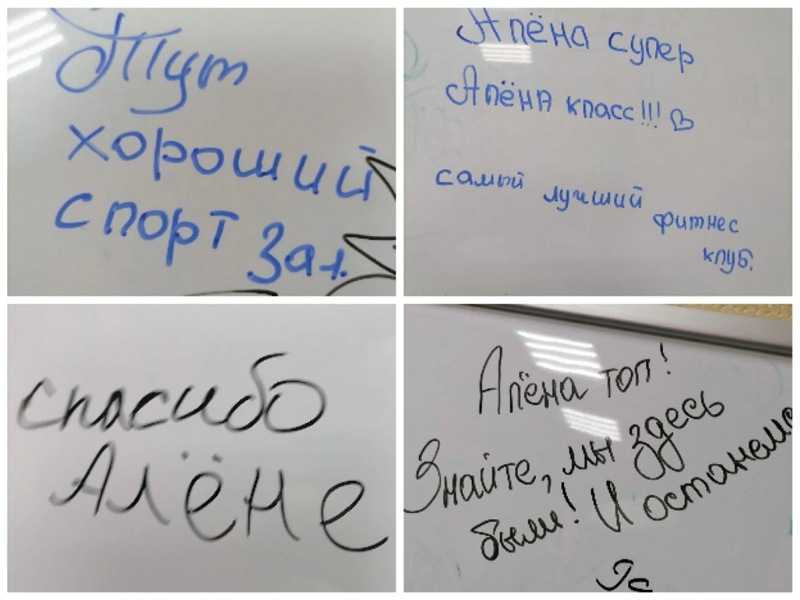 Тут
хороший
спорт зал.
Алёна супер
Алёна класс!!!
самый лучший фитнес
клуб.
спасибо
Алёне
Алёна топ!
Знайте, мы здесь
были! И останемс